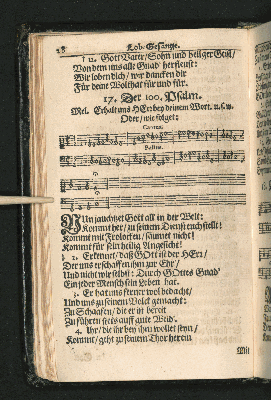 28 Lob-Gesänge.
12. Gott Vater/ Sohn und heilger Geist/
Von dem uns alle Gnad' herfleust:
Wir loben dich/ wir dancken dir
Für deine Wolthat für und für.
17. Der 100. Psalm.
Mel. Erhalt uns HErr bey deinem Wort. u.s.w.
Oder/ wie folget:
Cantus.
Bassus.
NUn jauchzet Gott all in der Welt:
Kommt her/ zu seinem Dienst euch stellt:
Kommt mit Frolocken/ säumet nicht!
Kommt für sein heilig Angesicht!
2. Erkennt/ daß GOtt ist der HErr/
Der uns erschaffen ihm zur Ehr/
Und nicht wir selbst: Durch GOttes Gnad'
Ein jeder Mensch sein Leben hat.
3. Er hat uns ferner wol bedacht/
Und uns zu seinem Volck gemacht:
Zu Schaafen/ die er ist bereit
Zu führen stets auff gute Weid'.
4. Ihr/ die ihr bey ihm wollet seyn/
Kommt/ geht zu seinen Thoren ein
Mit